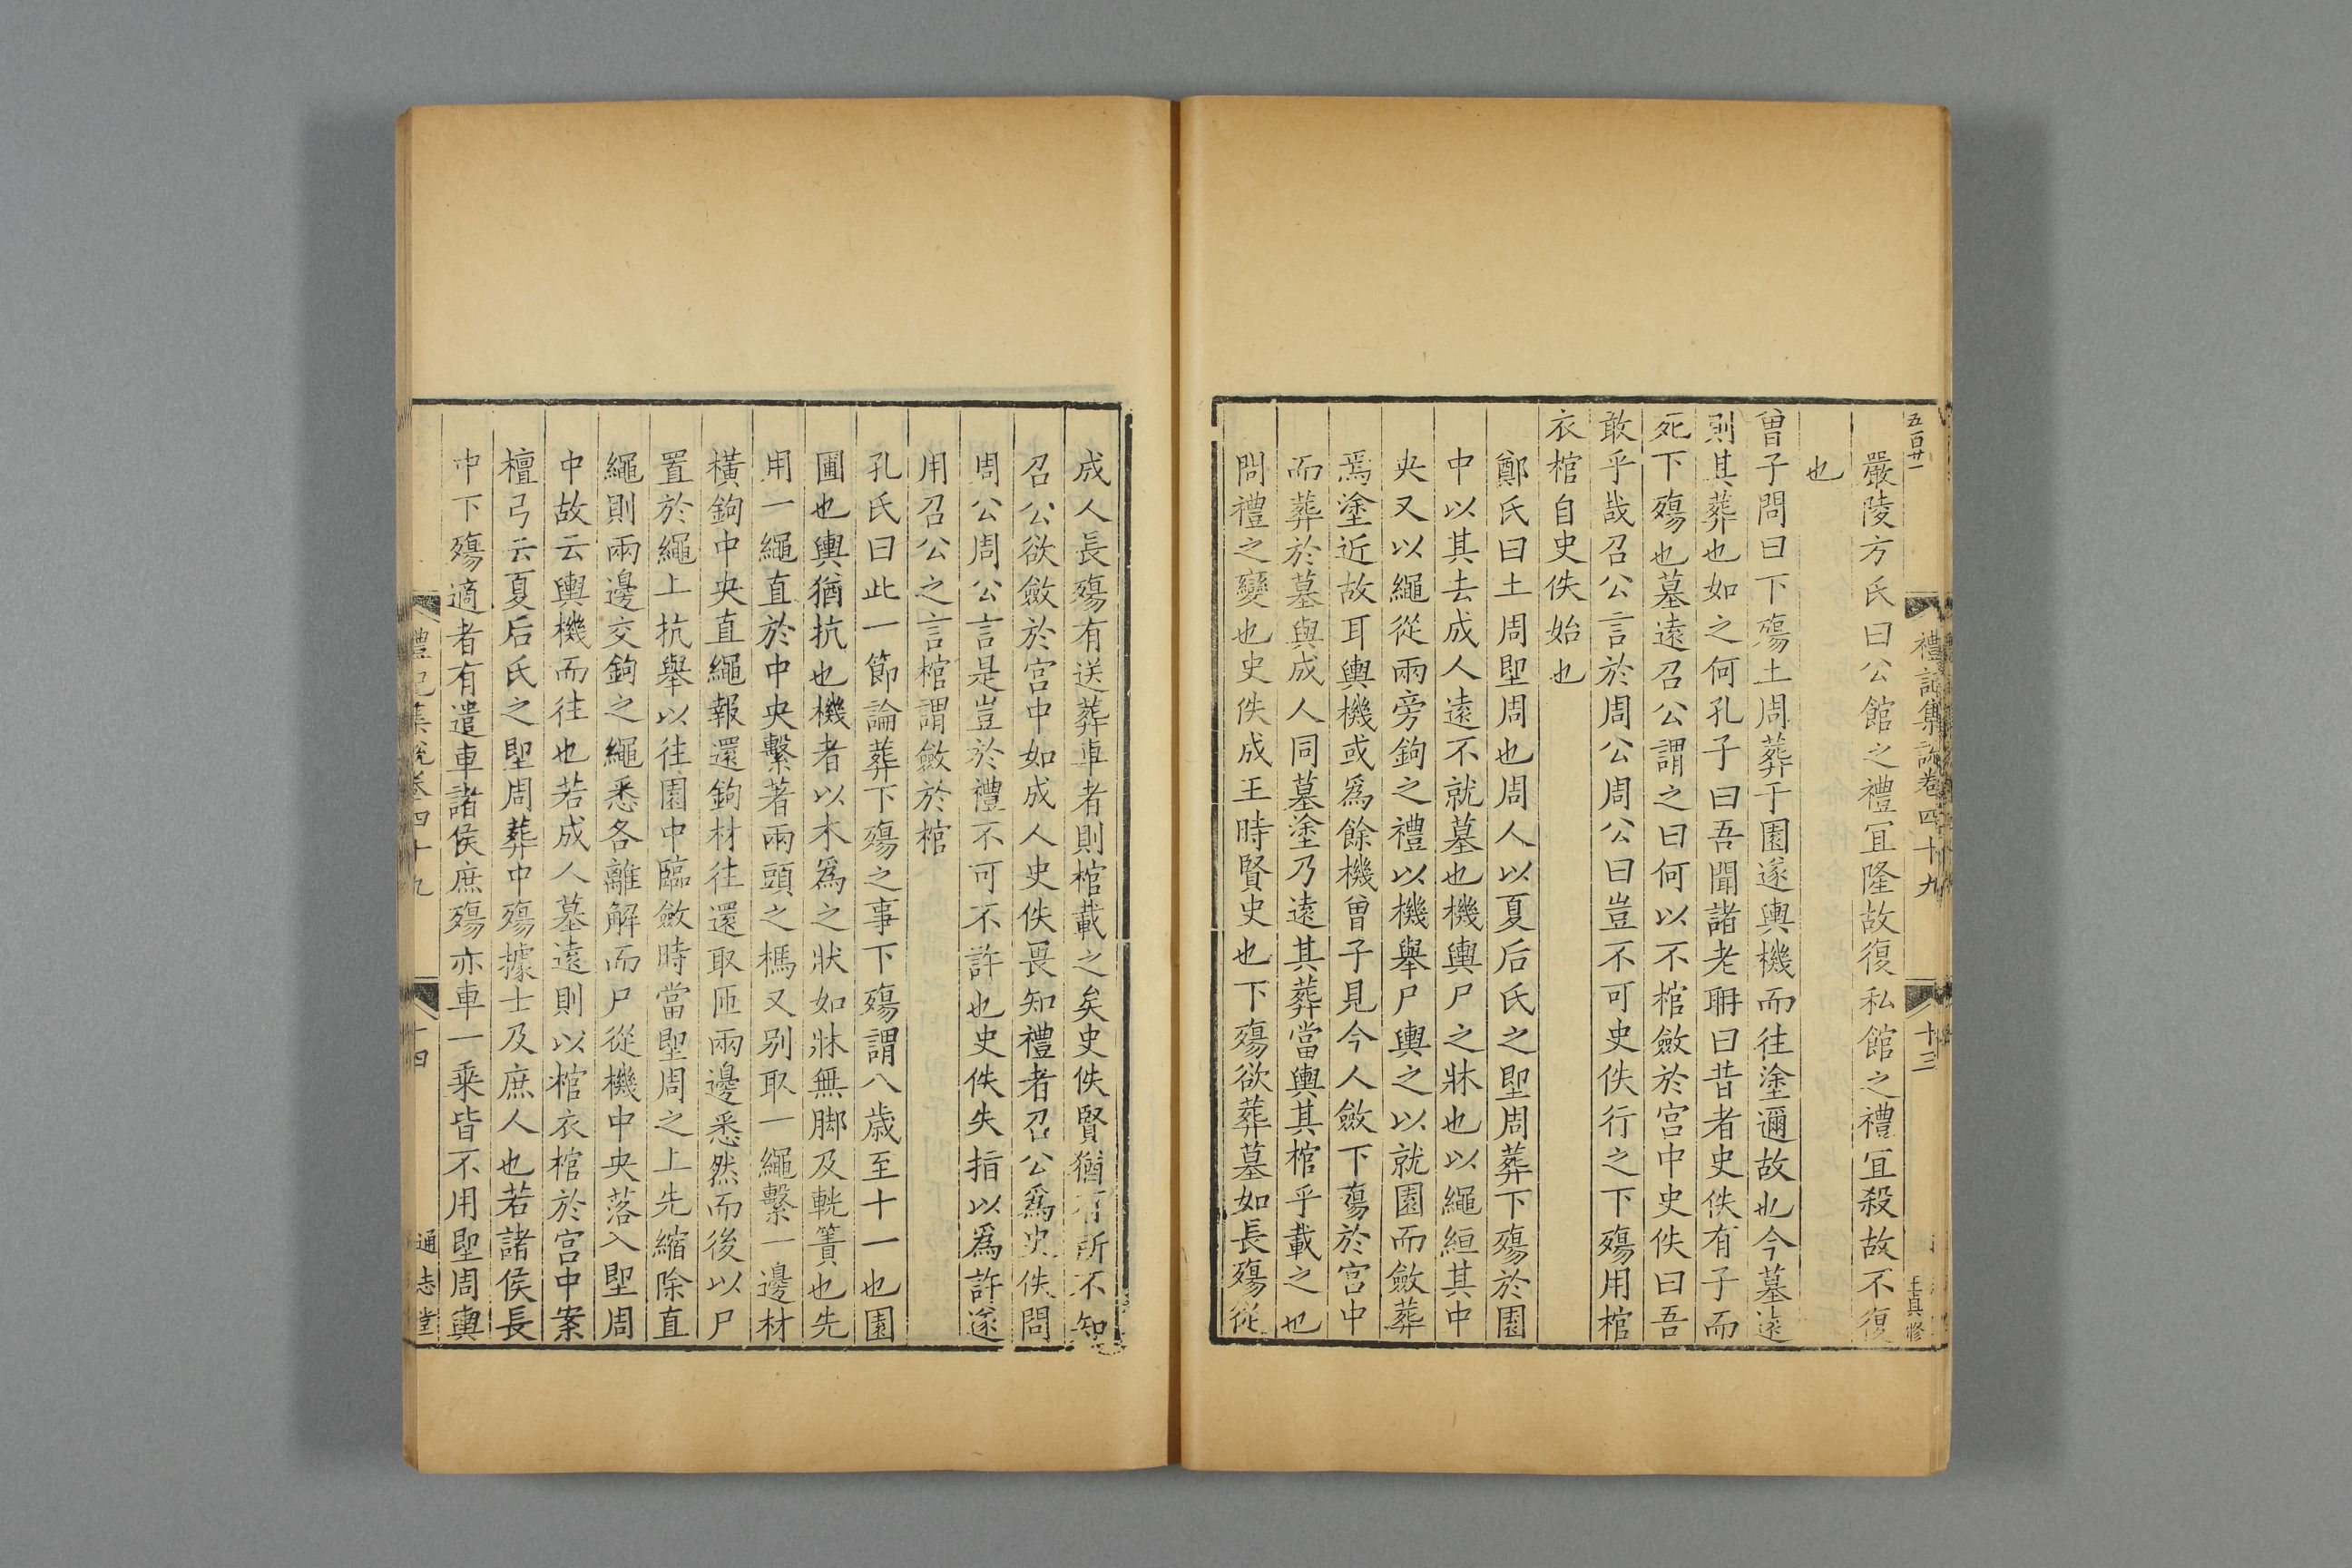 五百廿一
禮記集說卷四十九
十三
王真修
嚴陵方氏曰公館之禮宜隆故復私館之禮宜殺故不復
也
曾子問曰下殤土周葬于園遂輿機而往塗邇故也今墓遠
則其葬也如之何孔子曰吾聞諸老聃曰昔者史佚有子而
死下殤也墓遠召公謂之曰何以不棺斂於宮中史佚曰吾
敢乎哉召公言於周公周公曰豈不可史佚行之下殤用棺
衣棺自史佚始也
鄭氏曰土周堲周也周人以夏后氏之堲周葬下殤於園
中以其去成人遠不就墓也機輿尸之牀也以繩絙其中
央又以繩從兩旁鉤之禮以機舉尸輿之以就園而斂葬
焉塗近故耳輿機或爲餘機曾子見今人斂下殤於宮中
而葬於墓與成人同墓塗乃遠其葬當輿其棺乎載之也
問禮之變也史佚成王時賢史也下殤欲葬墓如長殤從
成人長殤有送葬車者則棺載之矣史佚賢猶有所不知
召公欲斂於宮中如成人史佚畏知禮者召公爲史佚問
周公周公言是豈於禮不可不許也史佚失指以爲許遂
用召公之言棺謂斂於棺
孔氏曰此一節論葬下殤之事下殤謂八歲至十一也園
圃也輿猶抗也機者以木爲之狀如牀無脚及輄簀也先
用一繩直於中央繫著兩頭之榪又別取一繩繫一邊材
橫鉤中央直繩報還鉤材往還取匝兩邊悉然而後以尸
置於繩上抗舉以往園中臨斂時當堲周之上先縮除直
繩則兩邊交鉤之繩悉各離解而尸從機中央落入堲周
中故云輿機而往也若成人墓遠則以棺衣棺於宮中案
檀弓云夏后氏之堲周葬中殤據士及庶人也若諸侯長
中下殤適者有遣車諸侯庶殤亦車一乗皆不用堲周輿
禮記集說卷四十九
十四
通志堂